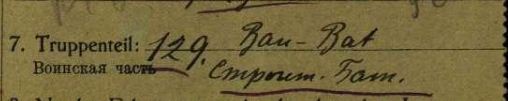 7. Truppenteil: 129. Bau-Bat
Воинская часть Строит. Бат.